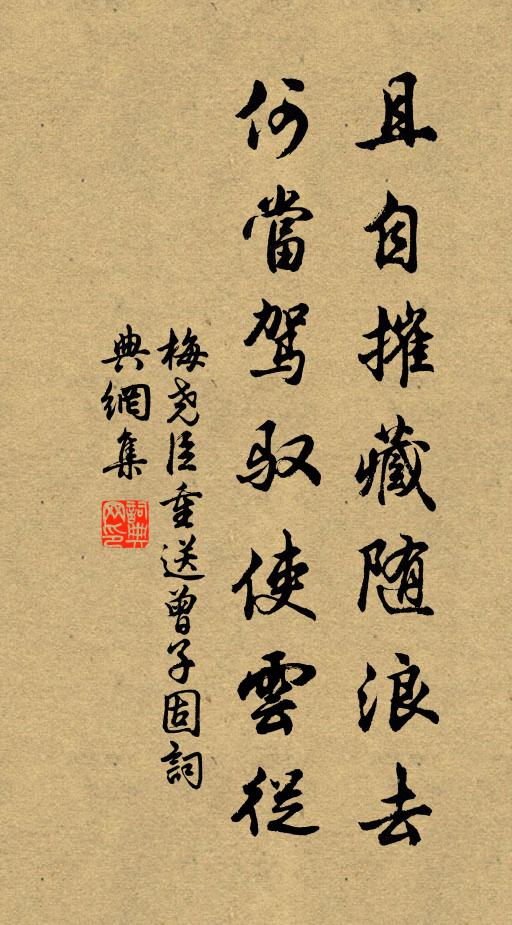 且自摧藏随浪去
何當駕驭使雲從
梅尧臣重送曾子固詞
典網集
詞典網印